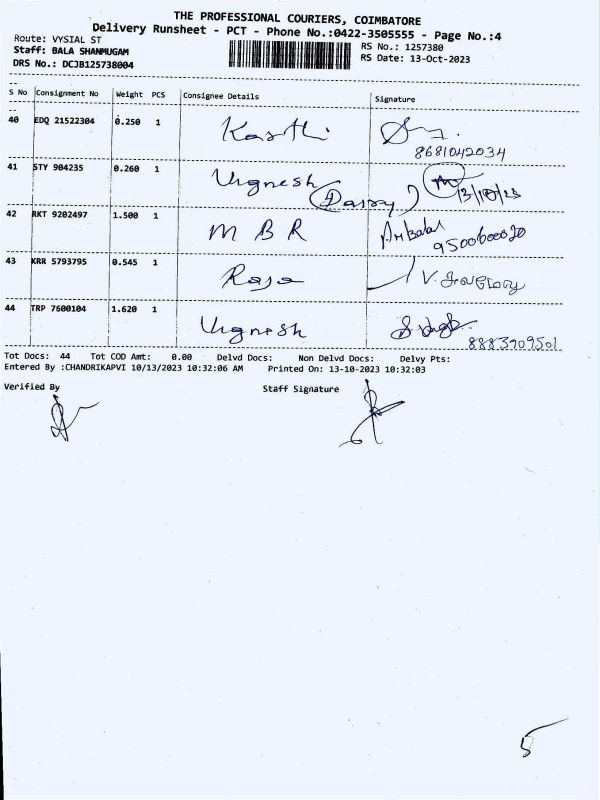 THE PROFESSIONAL COURIERS, COIMBATORE
Delivery Runsheet - PCT - Phone No.:0422-3505555 - Page No.:4
Route: VYSIAL ST
Staff: BALA SHANMUGAM
DRS No.: DCJB125738004
RS No.: 1257380
RS Date: 13-Oct-2023
S No Consignment No Weight PCS Consignee Details Signature
40 EDQ 21522304 0.250 1 Karthi
8681042034
41 STY 904235 0.260 1 Vignesh 13/10/23
42 RKT 9202497 1.500 1 M B R
9500600020
43 KRR 5793795 0.545 1 Raja V.
44 TRP 7600104 1.620 1 Vignesh
8883909501
Tot Docs: 44 Tot COD Amt: 0.00 Delvd Docs: Non Delvd Docs: Delvy Pts:
Entered By :CHANDRIKAPVI 10/13/2023 10:32:06 AM Printed On: 13-10-2023 10:32:03
Verified By Staff Signature
5